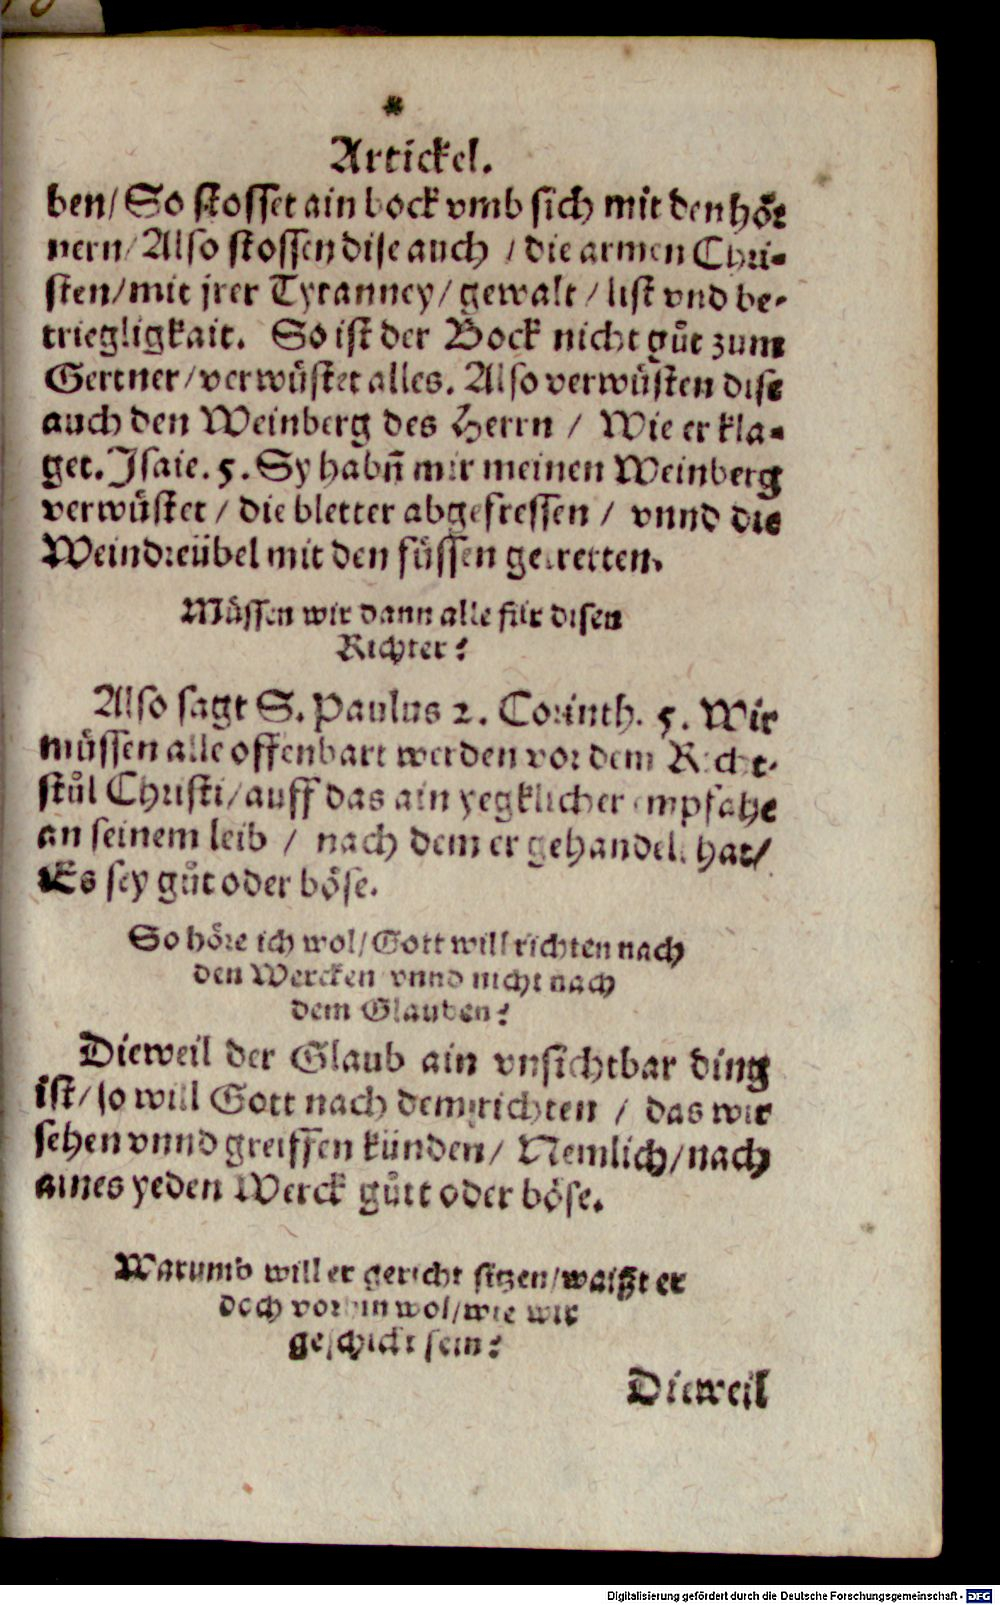 Artickel.
ben/ So stosset ain bock vmb sich mit den hoͤr
nern/ Also stossen dise auch / die armen Chri-
sten/ mit jrer Tyranney/ gewalt / list vnd be-
triegligkait. So ist der Bock nicht guͦt zum
Gertner/ verwuͤstet alles. Also verwuͤsten dise
auch den Weinberg des Herrn / Wie er kla-
get. Jsaie. 5. Sy habñ mir meinen Weinberg
verwuͤstet / die bletter abgefressen / vnnd die
Weindreübel mit den fuͤssen getretten.
Muͤssen wir dann alle für disen
Richter?
Also sagt S. Paulus 2. Corinth. 5. Wir
muͤssen alle offenbart werden vor dem Richt-
stuͦl Christi/ auff das ain yegklicher empfahe
an seinem leib / nach dem er gehandelt hat/
Es sey guͦt oder boͤse.
So hoͤre ich wol/ Gott will richten nach
den Wercken vnnd nicht nach
dem Glauben?
Dieweil der Glaub ain vnsichtbar ding
ist/ so will Gott nach dem richten / das wir
sehen vnnd greiffen künden/ Nemlich/ nach
aines yeden Werck guͦtt oder boͤse.
Warumb will er gericht sitzen/ waißt er
doch vorhin wol/ wie wir
geschickt sein?
Dieweil
Digitalisierung gefördert durch die Deutsche Forschungsgemeinschaft - DFG